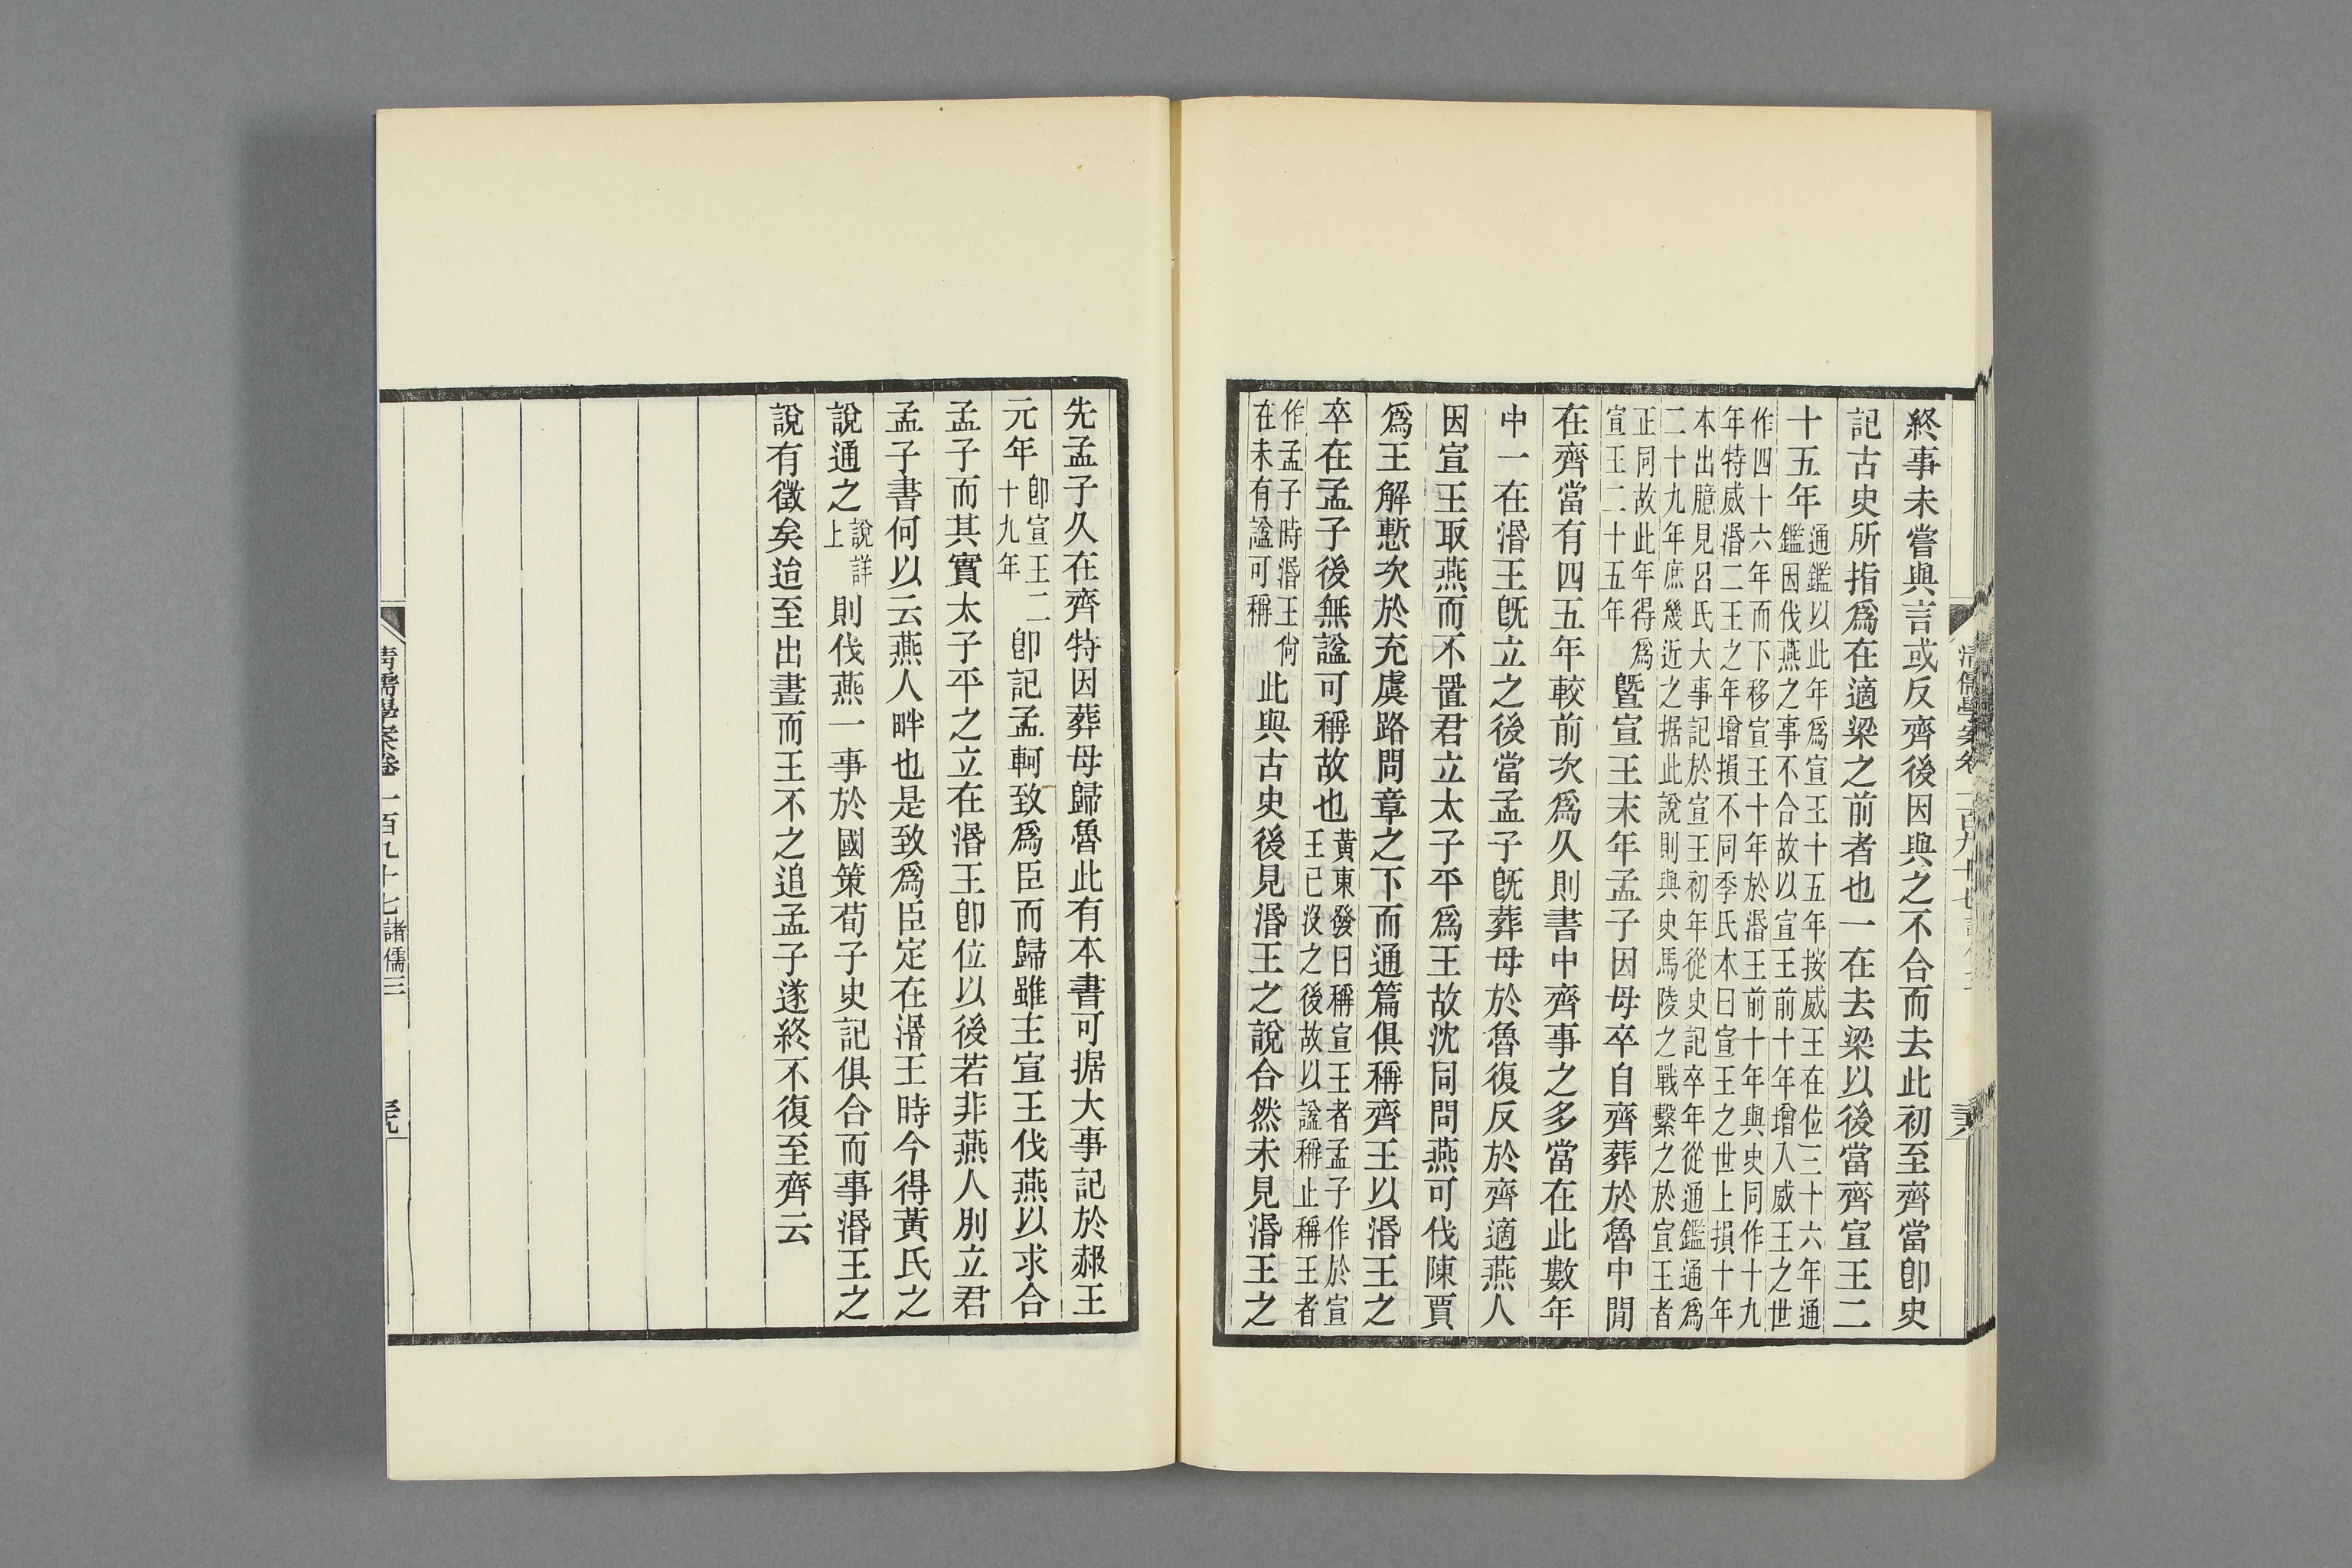 清儒學案卷一百九十七
終事未嘗與言或反齊後因與之不合而去此初至齊當卽史
記古史所指爲在適梁之前者也一在去梁以後當齊宣王二
十五年
通鑑以此年爲宣王十五年按威王在位三十六年通
鑑因伐燕之事不合故以宣王前十年增入威王之世
作四十六年而下移宣王十年於湣王前十年與史同作十九
年特威湣二王之年增損不同季氏本曰宣王之世上損十年
本出臆見呂氏大事記於宣王初年從史記卒年從通鑑通爲
二十九年庶幾近之据此說則與史馬陵之戰繫之於宣王者
正同故此年得爲
宣王二十五年
曁宣王末年孟子因母卒自齊葬於魯中閒
在齊當有四五年較前次爲久則書中齊事之多當在此數年
中一在湣王旣立之後當孟子旣葬母於魯復反於齊適燕人
因宣王取燕而不置君立太子平爲王故沈同問燕可伐陳賈
爲王解慙次於充虞路問章之下而通篇俱稱齊王以湣王之
卒在孟子後無諡可稱故也
黃東發曰稱宣王者孟子作於宣
王已沒之後故以諡稱止稱王者
作孟子時湣王尙
在未有諡可稱
此與古史後見湣王之說合然未見湣王之
先孟子久在齊特因葬母歸魯此有本書可据大事記於赧王
元年
卽宣王二
十九年
卽記孟軻致爲臣而歸雖主宣王伐燕以求合
孟子而其實太子平之立在湣王卽位以後若非燕人別立君
孟子書何以云燕人畔也是致爲臣定在湣王時今得黃氏之
說通之
說詳
上
則伐燕一事於國策荀子史記俱合而事湣王之
說有徵矣迨至出晝而王不之追孟子遂終不復至齊云
清儒學案卷一百九十七 諸儒三